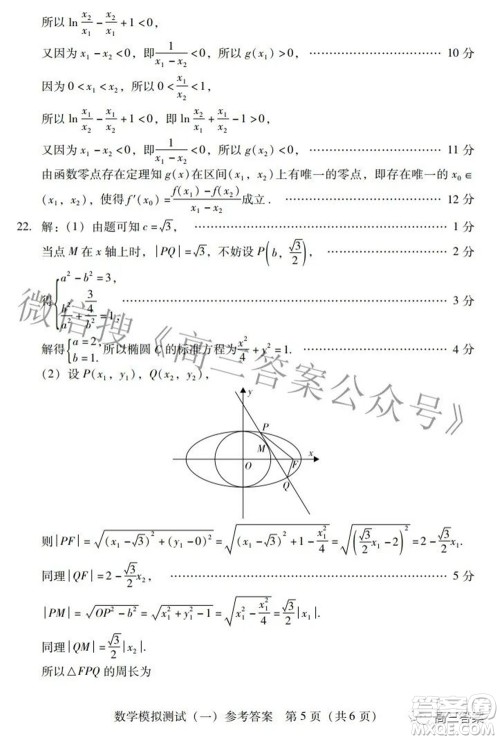 所以 ln x₂/x₁ - x₂/x₁ + 1 < 0，
又因为 x₁ - x₂ < 0，即 1/(x₁ - x₂) < 0，所以 g(x₁) > 0， …… 10 分
因为 0 < x₁ < x₂，所以 0 < x₁/x₂ < 1，
所以 ln x₁/x₂ - x₁/x₂ + 1 < 0，即 ln x₂/x₁ + x₁/x₂ - 1 > 0，
又因为 1/(x₁ - x₂) < 0，所以 g(x₂) < 0， …… 11 分
由函数零点存在定理知 g(x) 在区间(x₁，x₂)上有唯一的零点，即存在唯一的 x₀ ∈
(x₁，x₂)，使得 f′(x₀) = (f(x₁) - f(x₂))/(x₁ - x₂) 成立. …… 12 分
22. 解：(1) 由题可知 c = √3， …… 1 分
当点 M 在 x 轴上时，|PQ| = √3，不妨设 P(b, √3/2)， …… 2 分
得 { a² - b² = 3, b²/a² + (3/4)/b² = 1. …… 3 分
解得 { a = 2, b = 1. 所以椭圆 C 的标准方程为 x²/4 + y² = 1. …… 4 分
(2) 设 P(x₁，y₁)，Q(x₂，y₂)，
y
P
M
O
F
x
Q
则|PF| = √((x₁ - √3)² + (y₁ - 0)²) = √((x₁ - √3)² + 1 - x₁²/4) = √((√3/2 x₁ - 2)²) = 2 - √3/2 x₁，
同理|QF| = 2 - √3/2 x₂， …… 5 分
|PM| = √(OP² - b²) = √(x₁² + y₁² - 1) = √(x₁² - x₁²/4) = √3/2 |x₁|，
同理|QM| = √3/2 |x₂|，
所以△FPQ 的周长为
数学模拟测试（一）参考答案 第 5 页（共 6 页）
微信搜《高三答案公众号》
高三答案